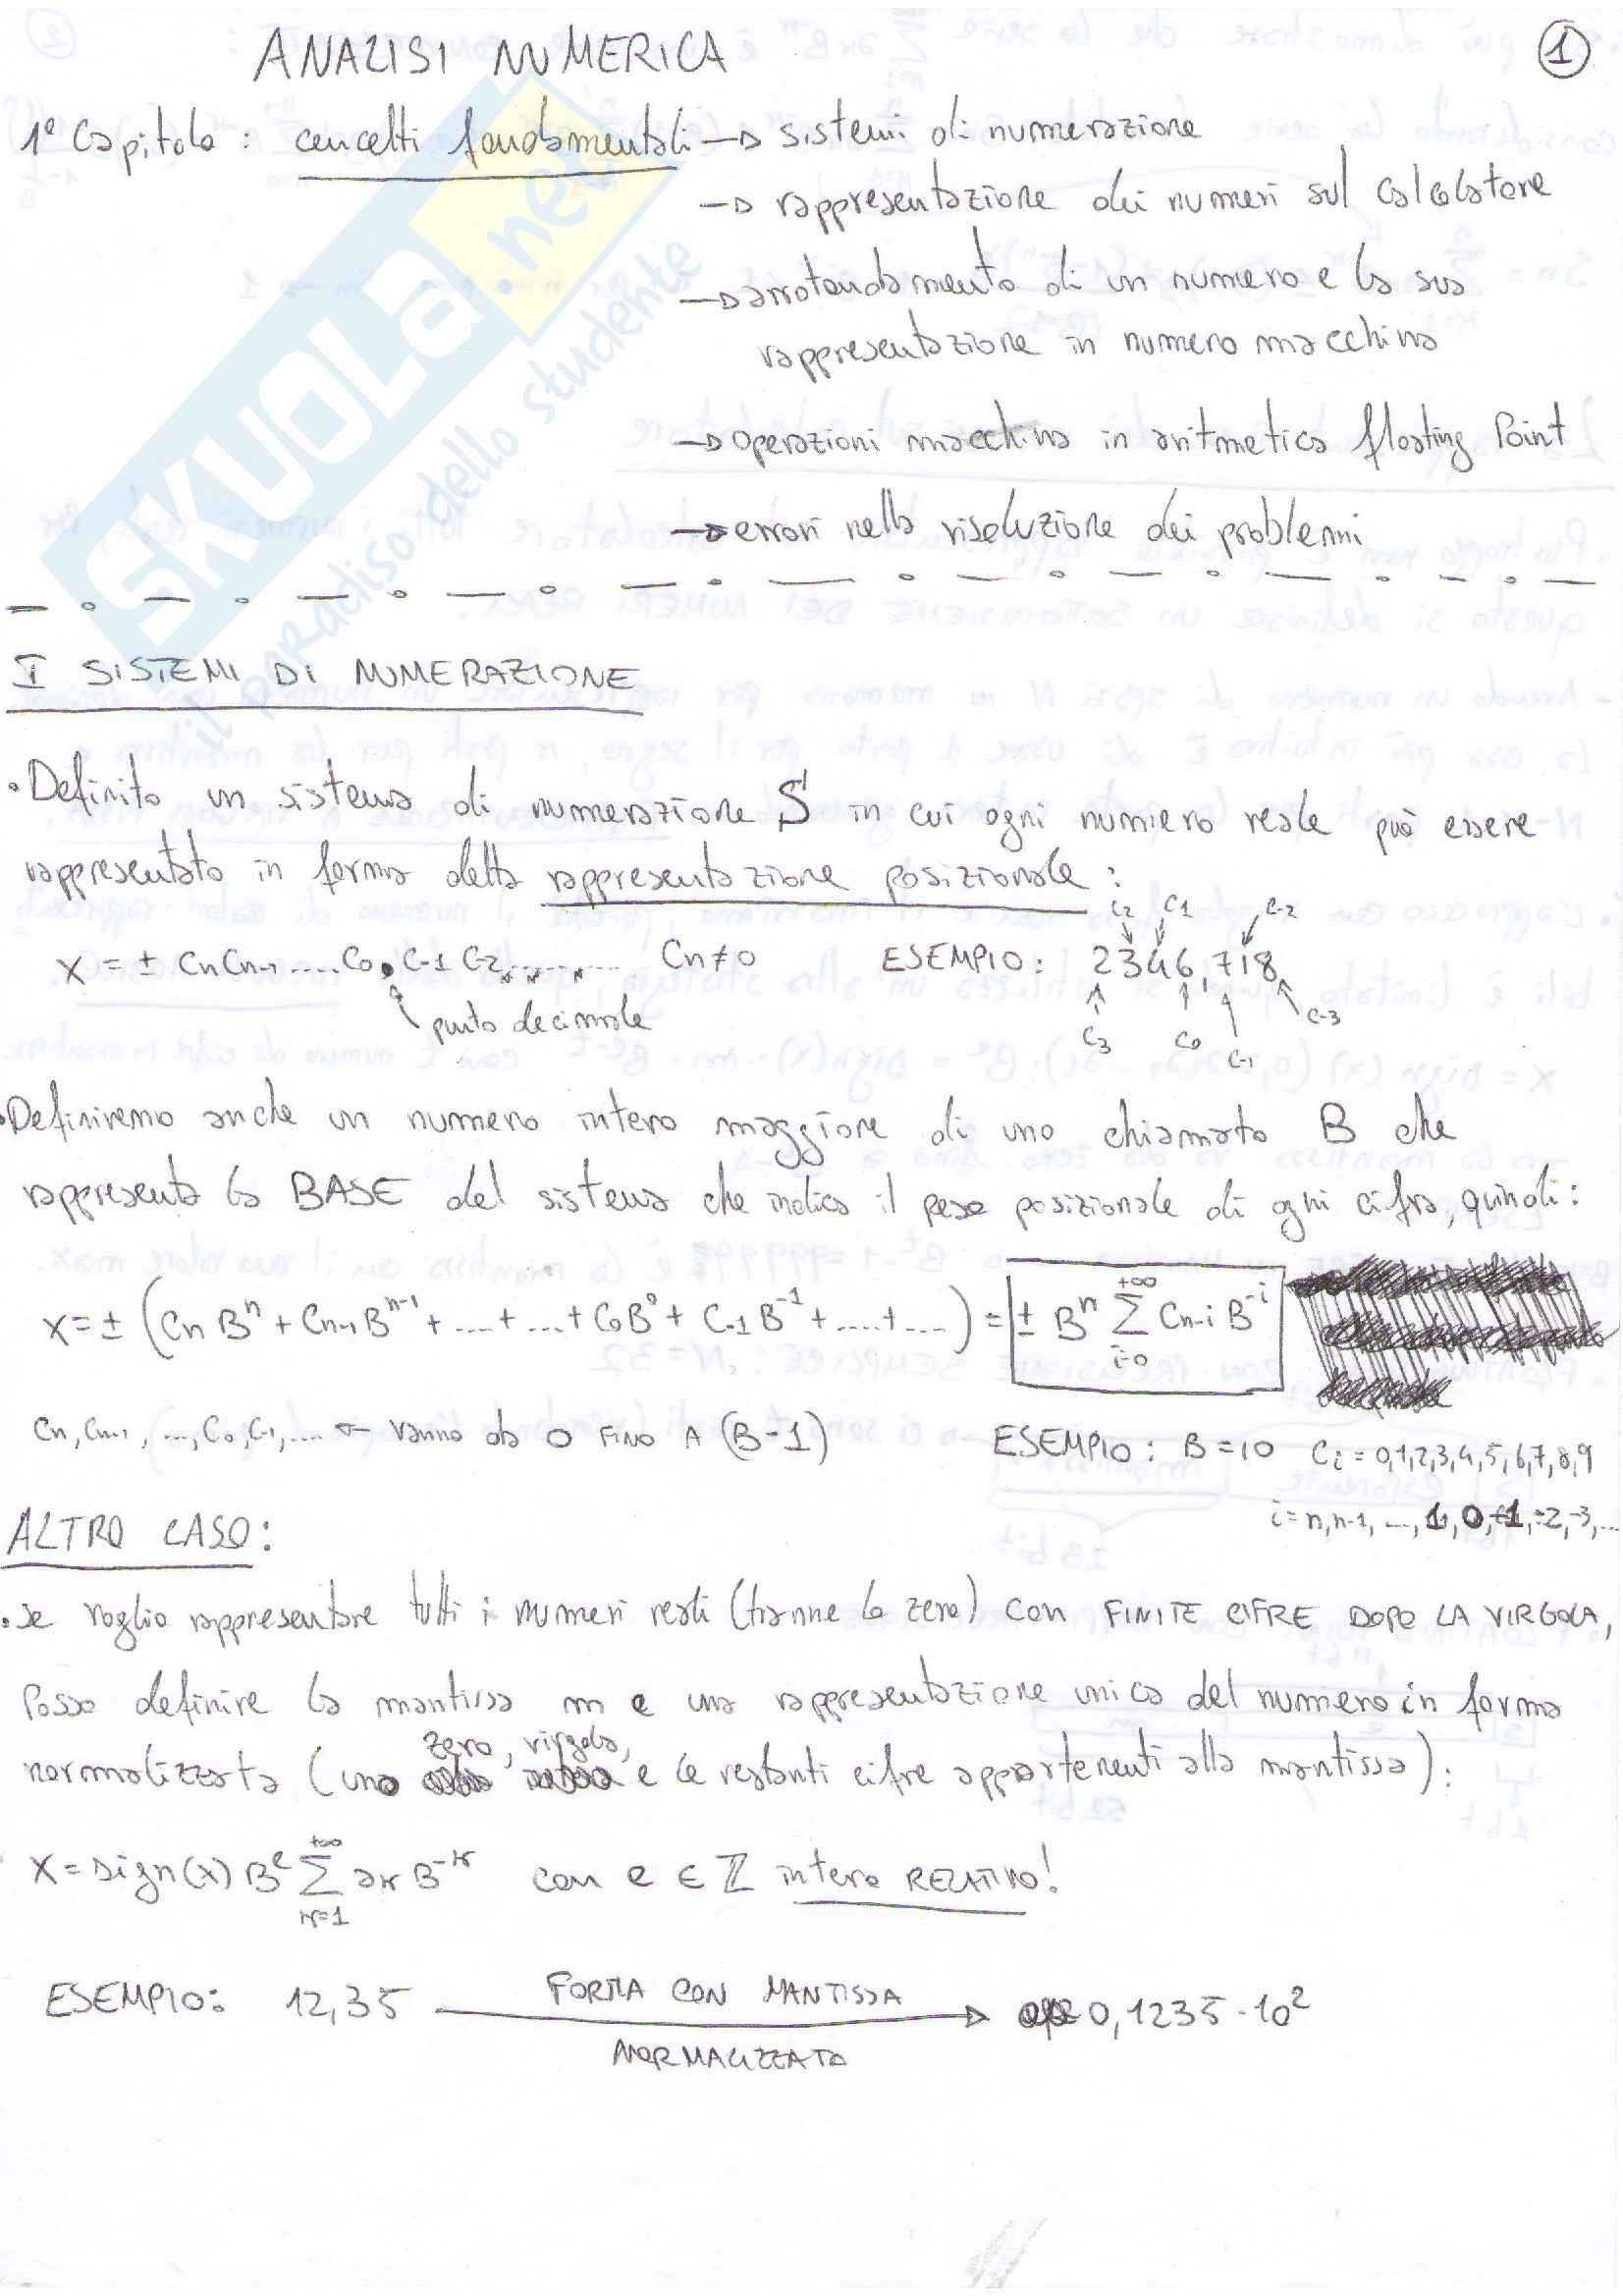 ANALISI NUMERICA
1
1° Capitolo : concetti fondamentali → sistemi di numerazione
→ rappresentazione dei numeri sul calcolatore
→ arrotondamento di un numero e la sua
rappresentazione in numero macchina
→ operazioni macchina in aritmetica floating Point
→ errori nella risoluzione dei problemi
SKUOLA.net
il paradiso dello studente
I SISTEMI DI NUMERAZIONE
• Definito un sistema di numerazione S in cui ogni numero reale può essere
rappresentato in forma detta rappresentazione posizionale :
C2 C1 C-2
X = ± Cn Cn-1 ..... C0 . C-1 C-2 ......... Cn ≠ 0 ESEMPIO : 2346,718
punto decimale C3 C0 C-1 C-3
• Definiremo anche un numero intero maggiore di uno chiamato B che
rappresenta la BASE del sistema che indica il peso posizionale di ogni cifra, quindi :
X = ± (Cn B^n + Cn-1 B^n-1 + .... + .... + C0 B^0 + C-1 B^-1 + .... + ....) = ± B^n Σ_{i=0}^{+∞} Cn-i B^-i
Cn, Cn-1, ..., C0, C-1, .... ← vanno da 0 FINO A (B-1) ESEMPIO : B = 10 Ci = 0,1,2,3,4,5,6,7,8,9
i = n, n-1, ..., 1, 0, -1, -2, -3, ...
ALTRO CASO :
• Se voglio rappresentare tutti i numeri reali (tranne lo zero) con FINITE CIFRE DOPO LA VIRGOLA,
Posso definire la mantissa m e una rappresentazione unica del numero in forma
normalizzata (uno zero, virgola, e le restanti cifre appartenenti alla mantissa) :
X = sign(x) B^e Σ_{k=1}^{+∞} ak B^-k con e ∈ ℤ intero RELATIVO!
ESEMPIO : 12,35 FORMA CON MANTISSA → 0,1235 · 10^2
NORMALIZZATA